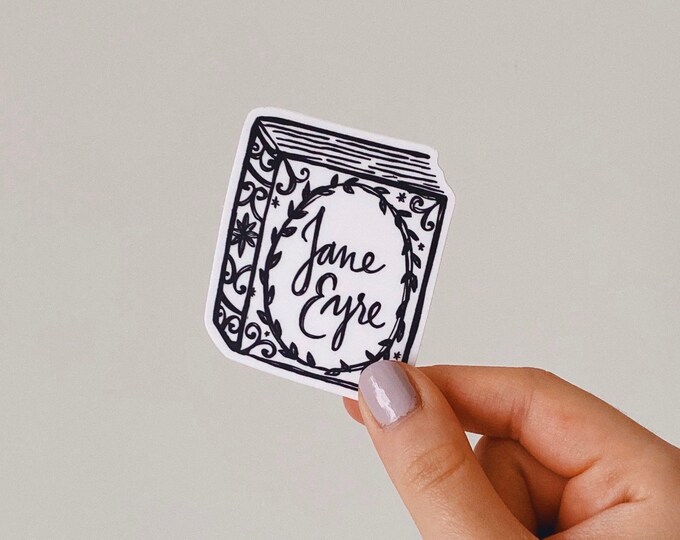 Jane
Eyre